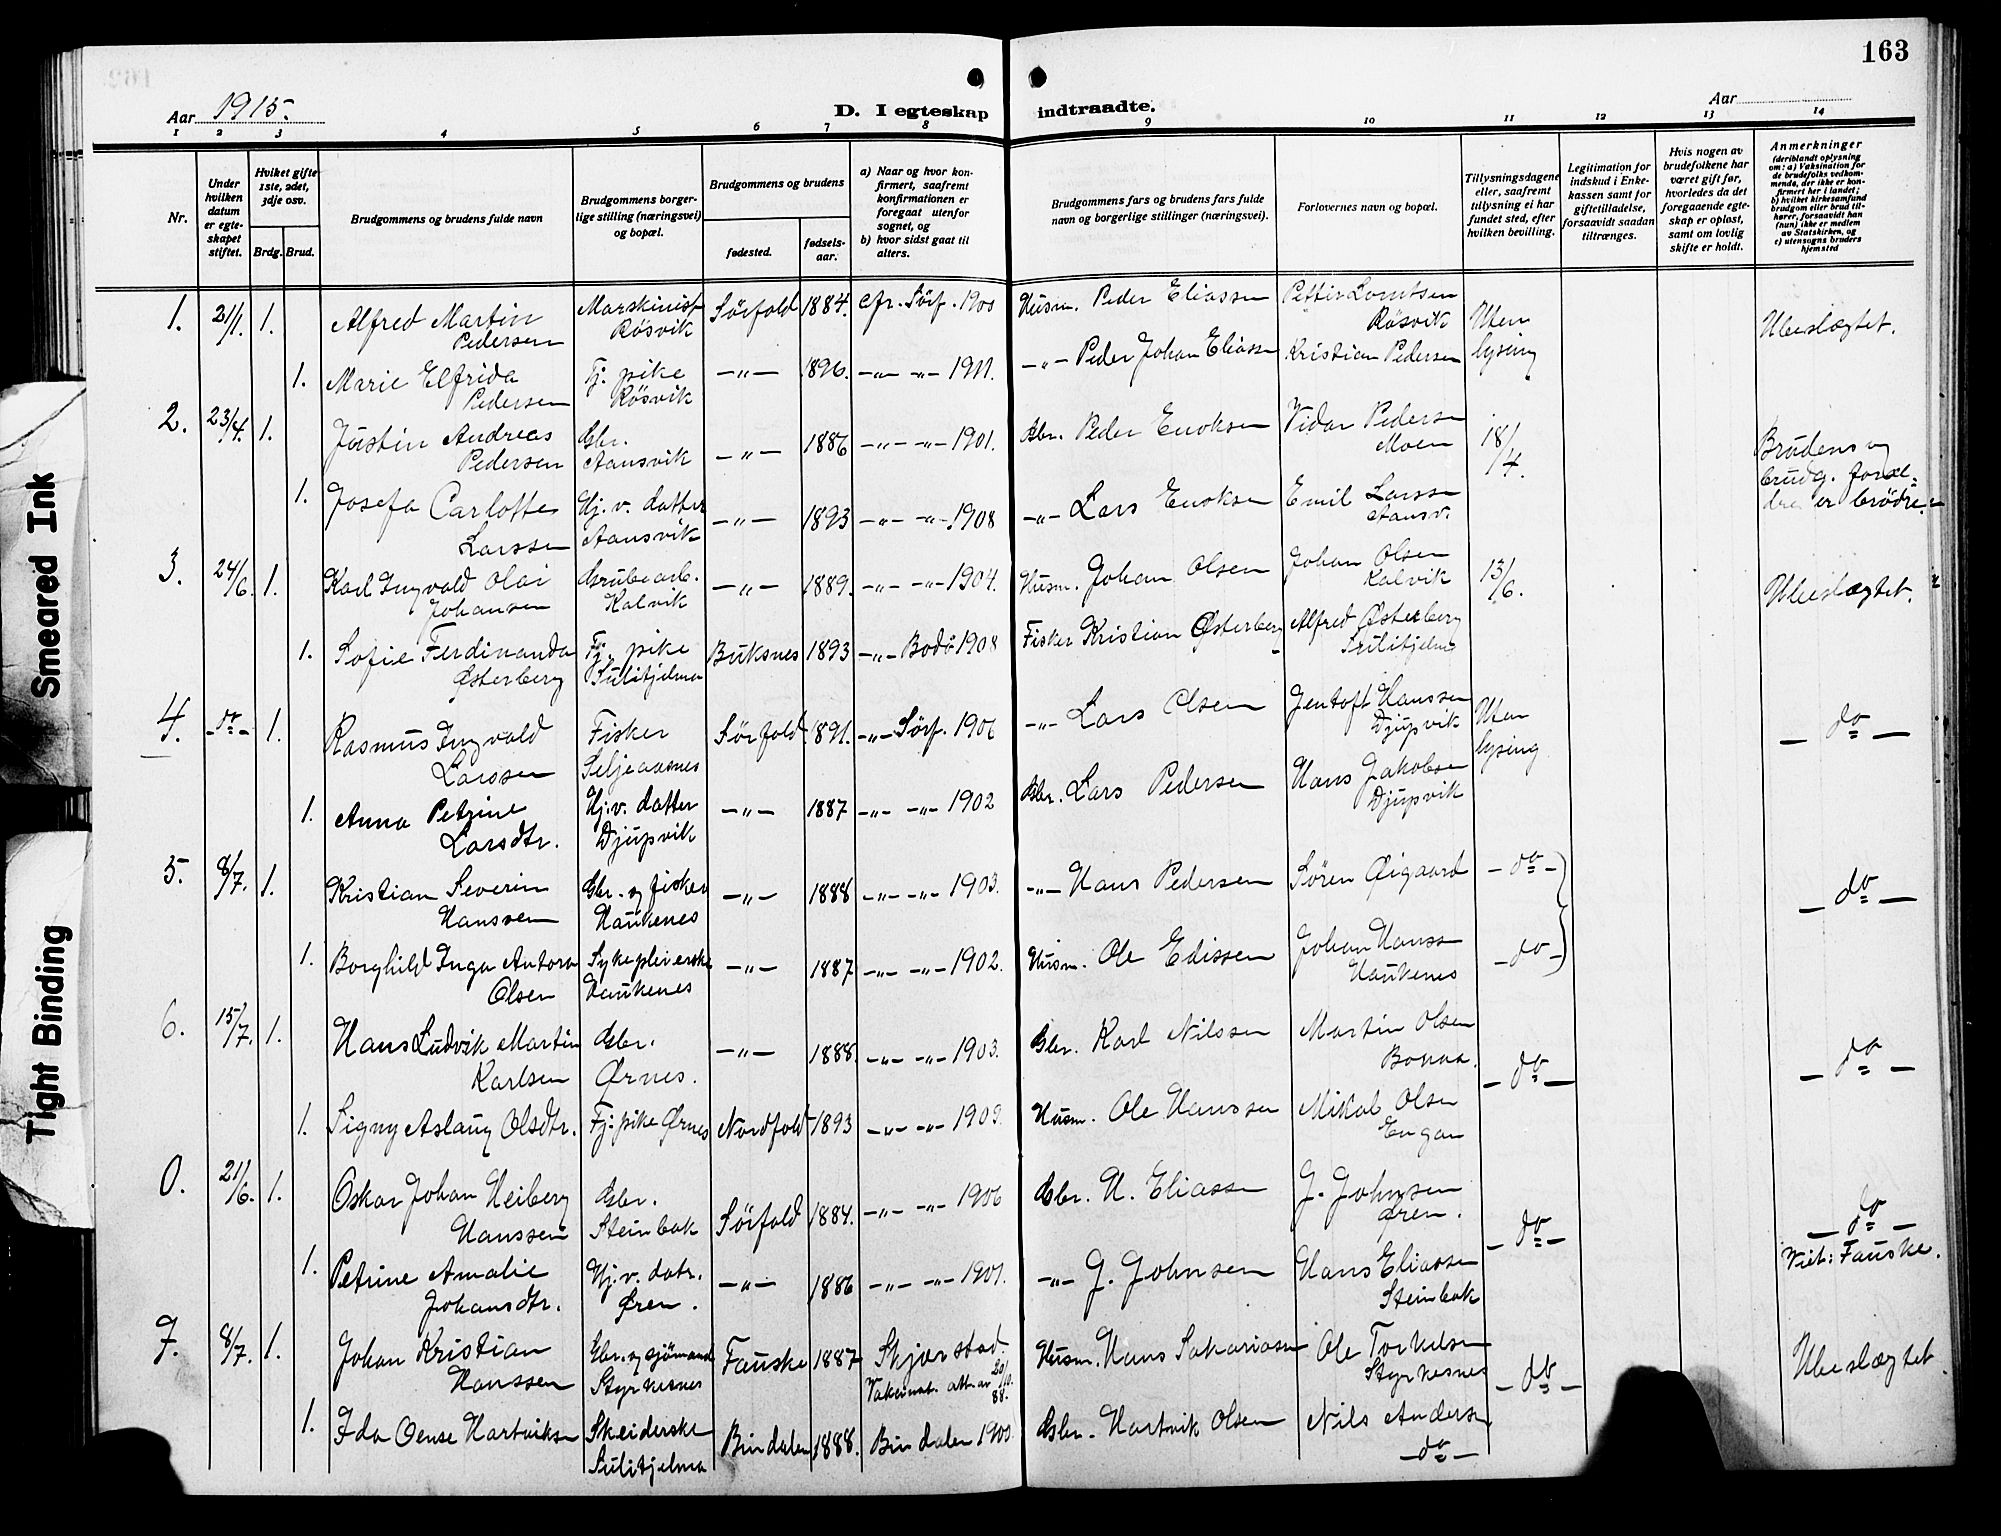 163
Aar 1915.
D. I egteskap indtraadte.
Aar
1 2 3 4 5 6 7 8 9 10 11 12 13 14
Nr.
Under hvilken datum er egteskapet stiftet.
Hviket gifte 1ste, 2det, 3dje osv.
Brdg. Brud.
Brudgommens og brudens fulde navn
Brudgommens borgerlige stilling (næringsvei) og bopæl.
Brudgommens og brudens
fødested.
fødselsaar.
a) Naar og hvor konfirmert, saafremt konfirmationen er foregaat utenfor sognet, og
b) hvor sidst gaat til alters.
Brudgommens fars og brudens fars fulde navn og borgerlige stillinger (næringsvei).
Forlovernes navn og bopæl.
Tillysningsdagene eller, saafremt tillysning ei har fundet sted, efter hvilken bevilling.
Legitimation for indskud i Enkekassen samt for giftetilladelse, forsaavidt saadan tiltrænges.
Hvis nogen av brudefolkene har været gift før, hvorledes da det foregaaende egteskap er opløst, samt om lovlig skifte er holdt.
Anmerkninger
(deriblandt oplysning om: a) Vaksination for de brudefolks vedkommende, der ikke er konfirmert her i landet; b) hvilket kirkesamfund brudgom eller brud tilhører, forsaavidt han (hun) ikke er medlem av Statskirken, og c) utensogns bruders hjemsted
1. 21/1. 1. Alfred Martin Pedersen Marskinist Røsvik Sørfold 1884. cfr. Sørf. 1900 Husm. Peder Eliassen Petter Lorntsen Røsvik Uten lysing Ubeslægtet.
1. Marie Elfrida Pedersen Tj. pike Røsvik -"- 1896. -"- -"- 1911. -"- Peder Johan Eliassn Kristian Pedersen
2. 23/4. 1. Justin Andreas Pedersen Gbr. Aansvik -"- 1886 -"- -"- 1901. Gbr. Peder Enoksen Vidar Pedersn Moen 18/4. Brudens og brudg. foræl= dre er brödre.
1. Josefa Carlotte Larssen Hj. v. datter Aansvik -"- 1893 -"- -"- 1908 -"- Lars Enoksn Emil Larssn Aansv.
3. 24/6. 1. Karl Ingvald Olai Johansen Grubearb. Kalvik -"- 1889. -"- -"- 1904. Husm. Johan Olsen Johan Olsen Kalvik 13/6. Ubeslægtet.
1. Sofie Ferdinanda Østerberg Tj. pike Sulitjelma Buksnes 1893 -"- Bodø 1908 Fisker Kristian Østerberg Alfred Østerberg Sulitjelma
4. -do- 1. Rasmus Ingvald Larssen Fisker Seljeaasnes Sørfold 1891. -"- Sørf. 1906 -"- Lars Olsen Jentoft Hanssen Djupvik Uten lysing - do -
1. Anna Petrine Larsdtr. Hj. v. datter Djupvik -"- 1887 -"- -"- 1902 Gbr. Lars Pedersen Hans Jakobsen Djupvik
5. 8/7. 1. Kristian Severin Hanssen Gbr. og fisker Haukenes -"- 1888 -"- -"- 1903. -"- Hans Pedersen Søren Øigaard - do - - do -
1. Borghild Inga Antora Olsen Sykepleierske Haukenes -"- 1887 -"- -"- 1902. Husm. Ole Edissen Johan Hanssn Haukenes - do -
6. 15/7. 1. Hans Ludvik Martin Karlsen Gbr. Ørnes. -"- 1888. -"- -"- 1903. Gbr. Karl Nilssen Martin Olsen Bonaa. - do - - do -
1. Signy Aslaug Olsdtr. Tj: pike Ørnes Nordfold 1893 -"- -"- 1909. Husm. Ole Hanssen Mikal Olsen Engan
0. 21/6. 1. Oskar Johan Heiberg Hanssen Gbr. Steinbak Sørfold 1884. -"- -"- 1906 Gbr. H. Eliassn J. Johnsen Øren. - do - - do -
1. Petrine Amalie Johansdtr. Hj. v. datr. Øren. -"- 1886 -"- -"- 1901. -"- J. Johnsen Hans Eliassen Steinbak Viet: Fauske.
7. 8/7. 1. Johan Kristian Hanssen Gbr. og sjømand Styrkesnes Fauske 1887 Skjerstad. Vaksinat. att. av 20/10. 88. Husm. Hans Sakariassn Ole Torkelsn Styrkesnes - do - Ubeslægtet.
1. Ida Oense Hartviksn Skeiderske Sulitjelma Bindalen 1888. Bindalen 1903. Gbr. Hartvik Olsen Nils Andersn - do -
Smeared Ink
Tight Binding